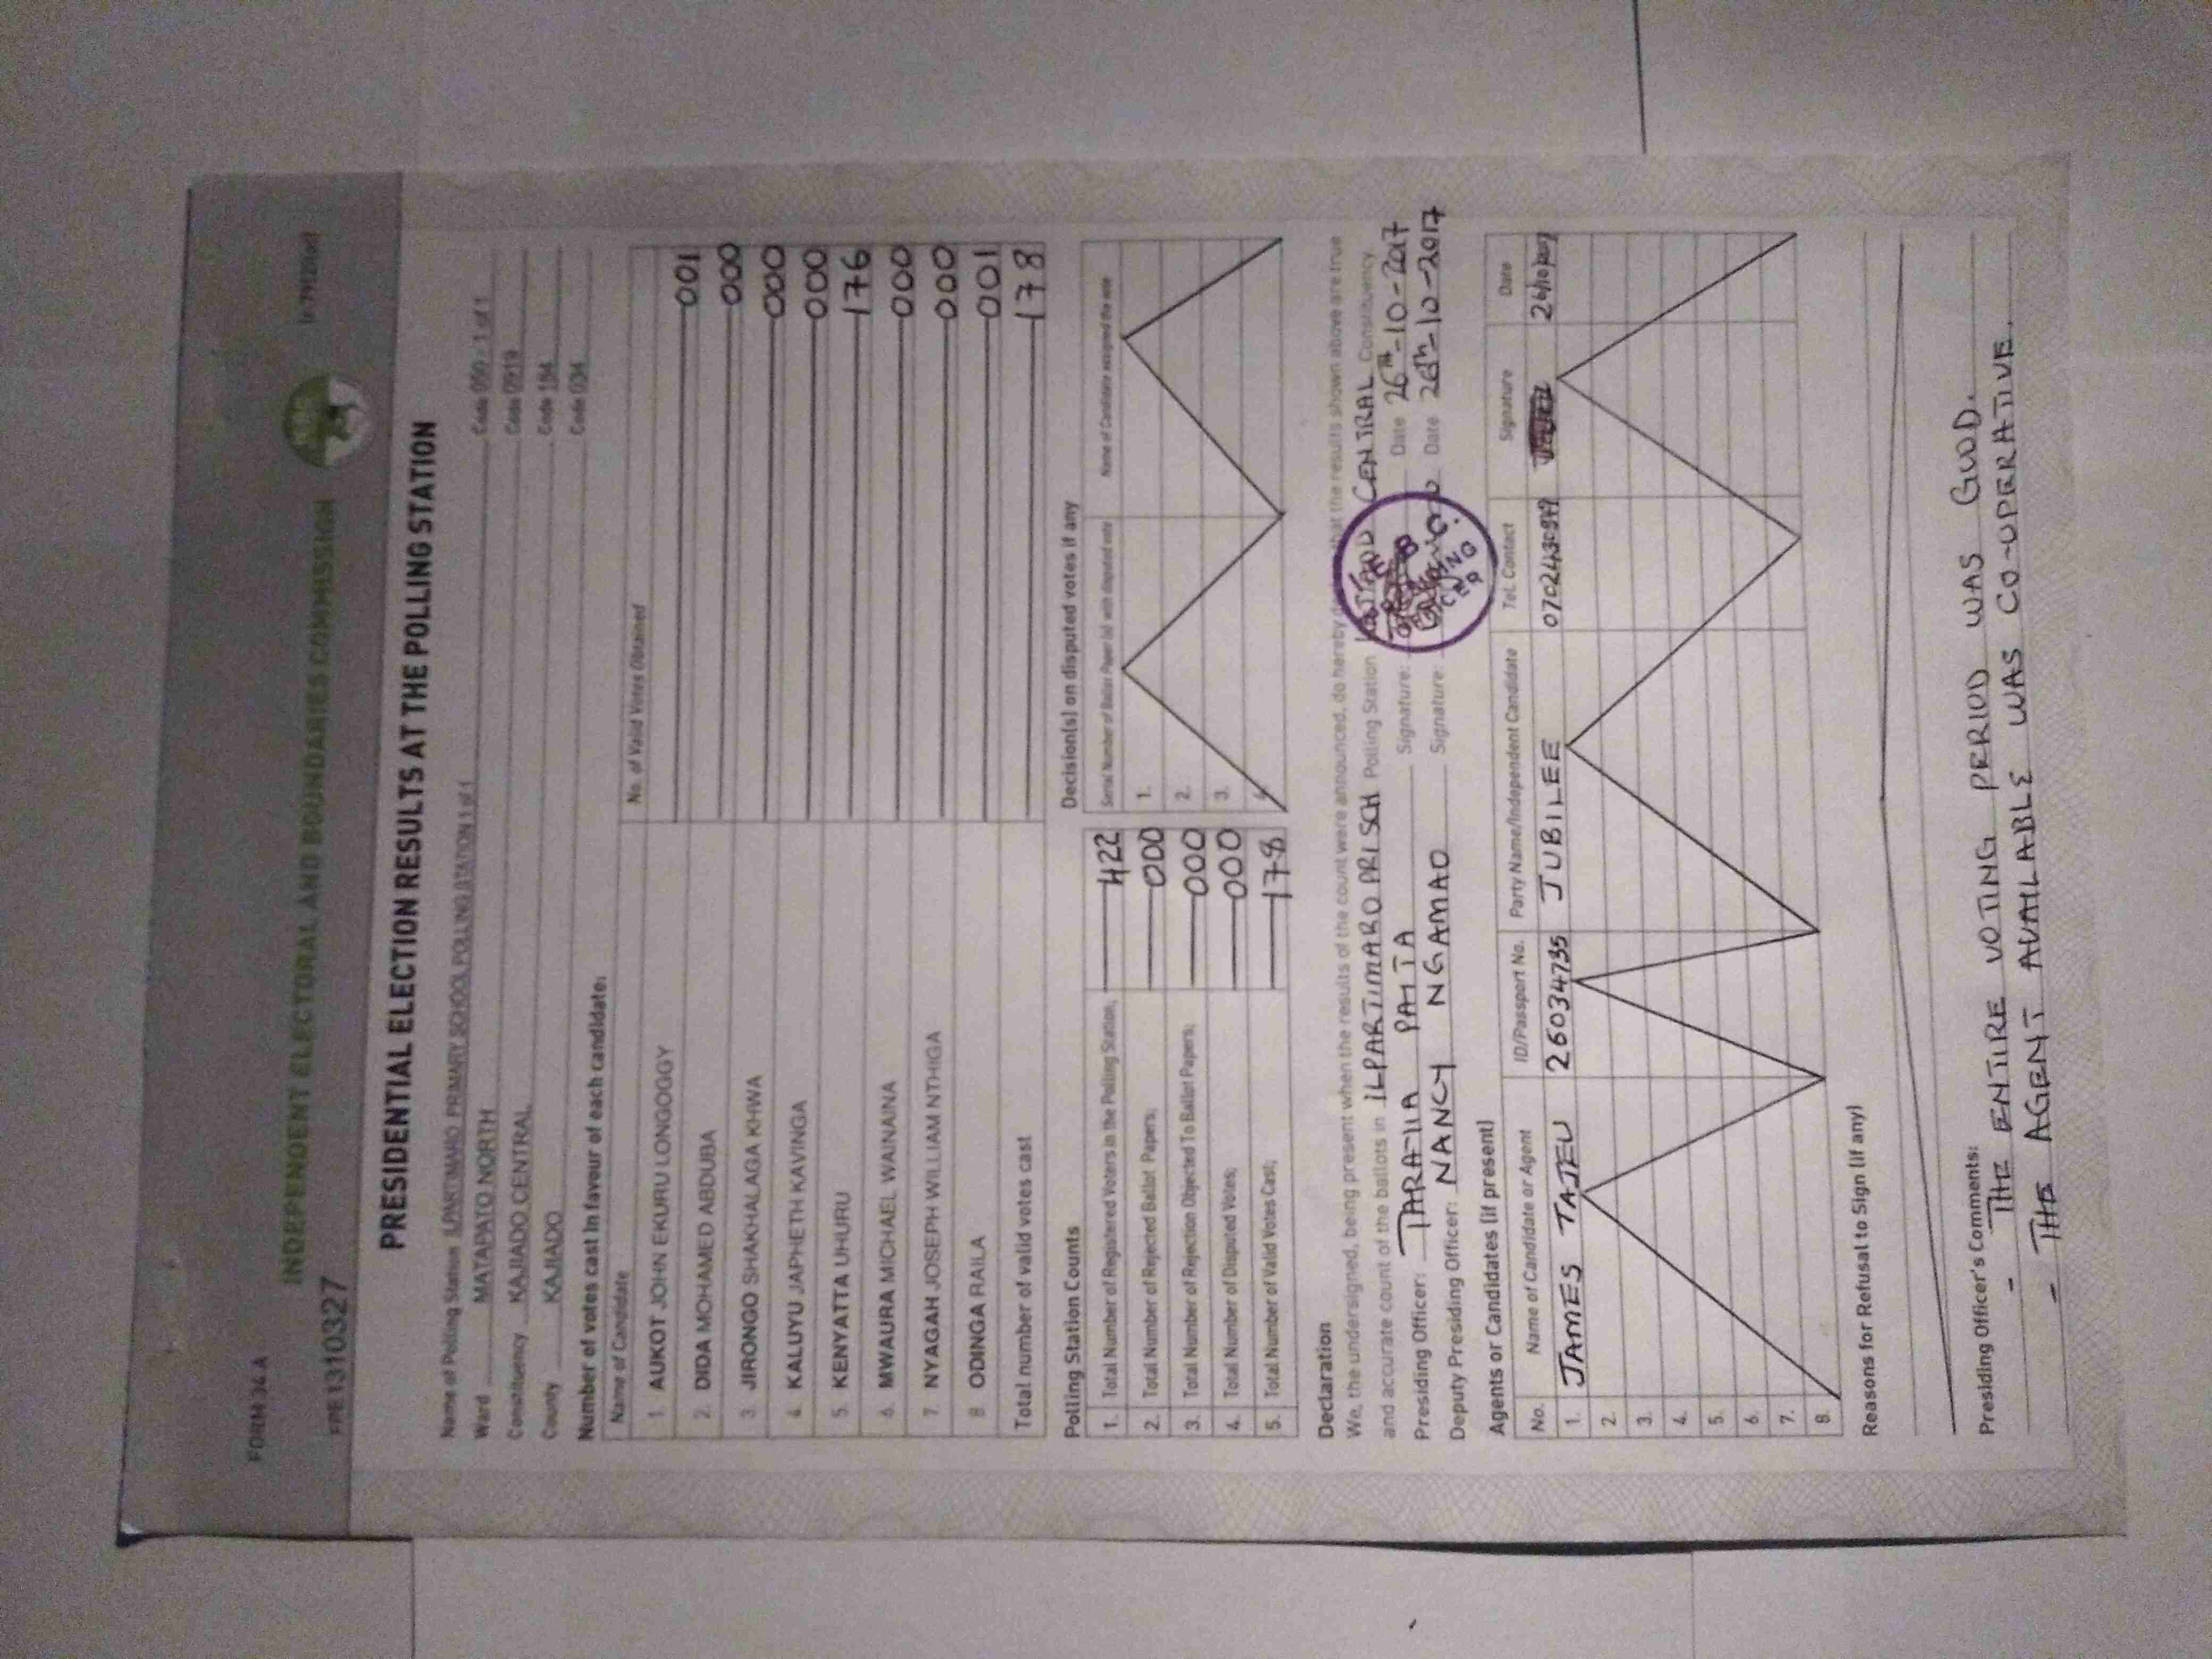 FORM 34 A
INDEPENDENT ELECTORAL AND BOUNDARIES COMMISSION
FPE1310327
PRESIDENTIAL ELECTION RESULTS AT THE POLLING STATION
Name of Polling Station ILPARTIMARO PRIMARY SCHOOL POLLING STATION 1 of 1 Code 050 - 1 of 1
Ward MATAPATO NORTH Code 0919
Constituency KAJIADO CENTRAL Code 184
County KAJIADO Code 034
Number of votes cast in favour of each candidate:
Name of Candidate No. of Valid Votes Obtained
1. AUKOT JOHN EKURU LONGOGGY 001
2. DIDA MOHAMED ABDUBA 000
3. JIRONGO SHAKHALAGA KHWA 000
4. KALUYU JAPHETH KAVINGA 000
5. KENYATTA UHURU 176
6. MWAURA MICHAEL WAINAINA 000
7. NYAGAH JOSEPH WILLIAM NTHIGA 000
8. ODINGA RAILA 001
Total number of valid votes cast 178
Polling Station Counts
1. Total Number of Registered Voters in the Polling Station; 422
2. Total Number of Rejected Ballot Papers; 000
3. Total Number of Rejection Objected To Ballot Papers; 000
4. Total Number of Disputed Votes; 000
5. Total Number of Valid Votes Cast; 178
Decision(s) on disputed votes if any
Serial Number of Ballot Paper (s) with disputed vote Name of Candidate assigned the vote
1.
2.
3.
4.
Declaration
We, the undersigned, being present when the results of the count were announced, do hereby that the results shown above are true
and accurate count of the ballots in ILPARTIMARO PRI SCH Polling Station CENTRAL Constituency
Presiding Officer: PAITA Signature: Date 26TH-10-2017
Deputy Presiding Officer: NANCY NGAMAO Signature: Date 26th-10-2017
Agents or Candidates (if present)
No. Name of Candidate or Agent ID/Passport No. Party Name/Independent Candidate Tel. Contact Signature Date
1. JAMES TAJEU 26034735 JUBILEE 26/10/2017
2.
3.
4.
5.
6.
7.
8.
Reasons for Refusal to Sign (if any)
Presiding Officer's Comments:
- THE ENTIRE VOTING PERIOD WAS GOOD.
- THE AGENT AVAILABLE WAS CO-OPERATIVE.